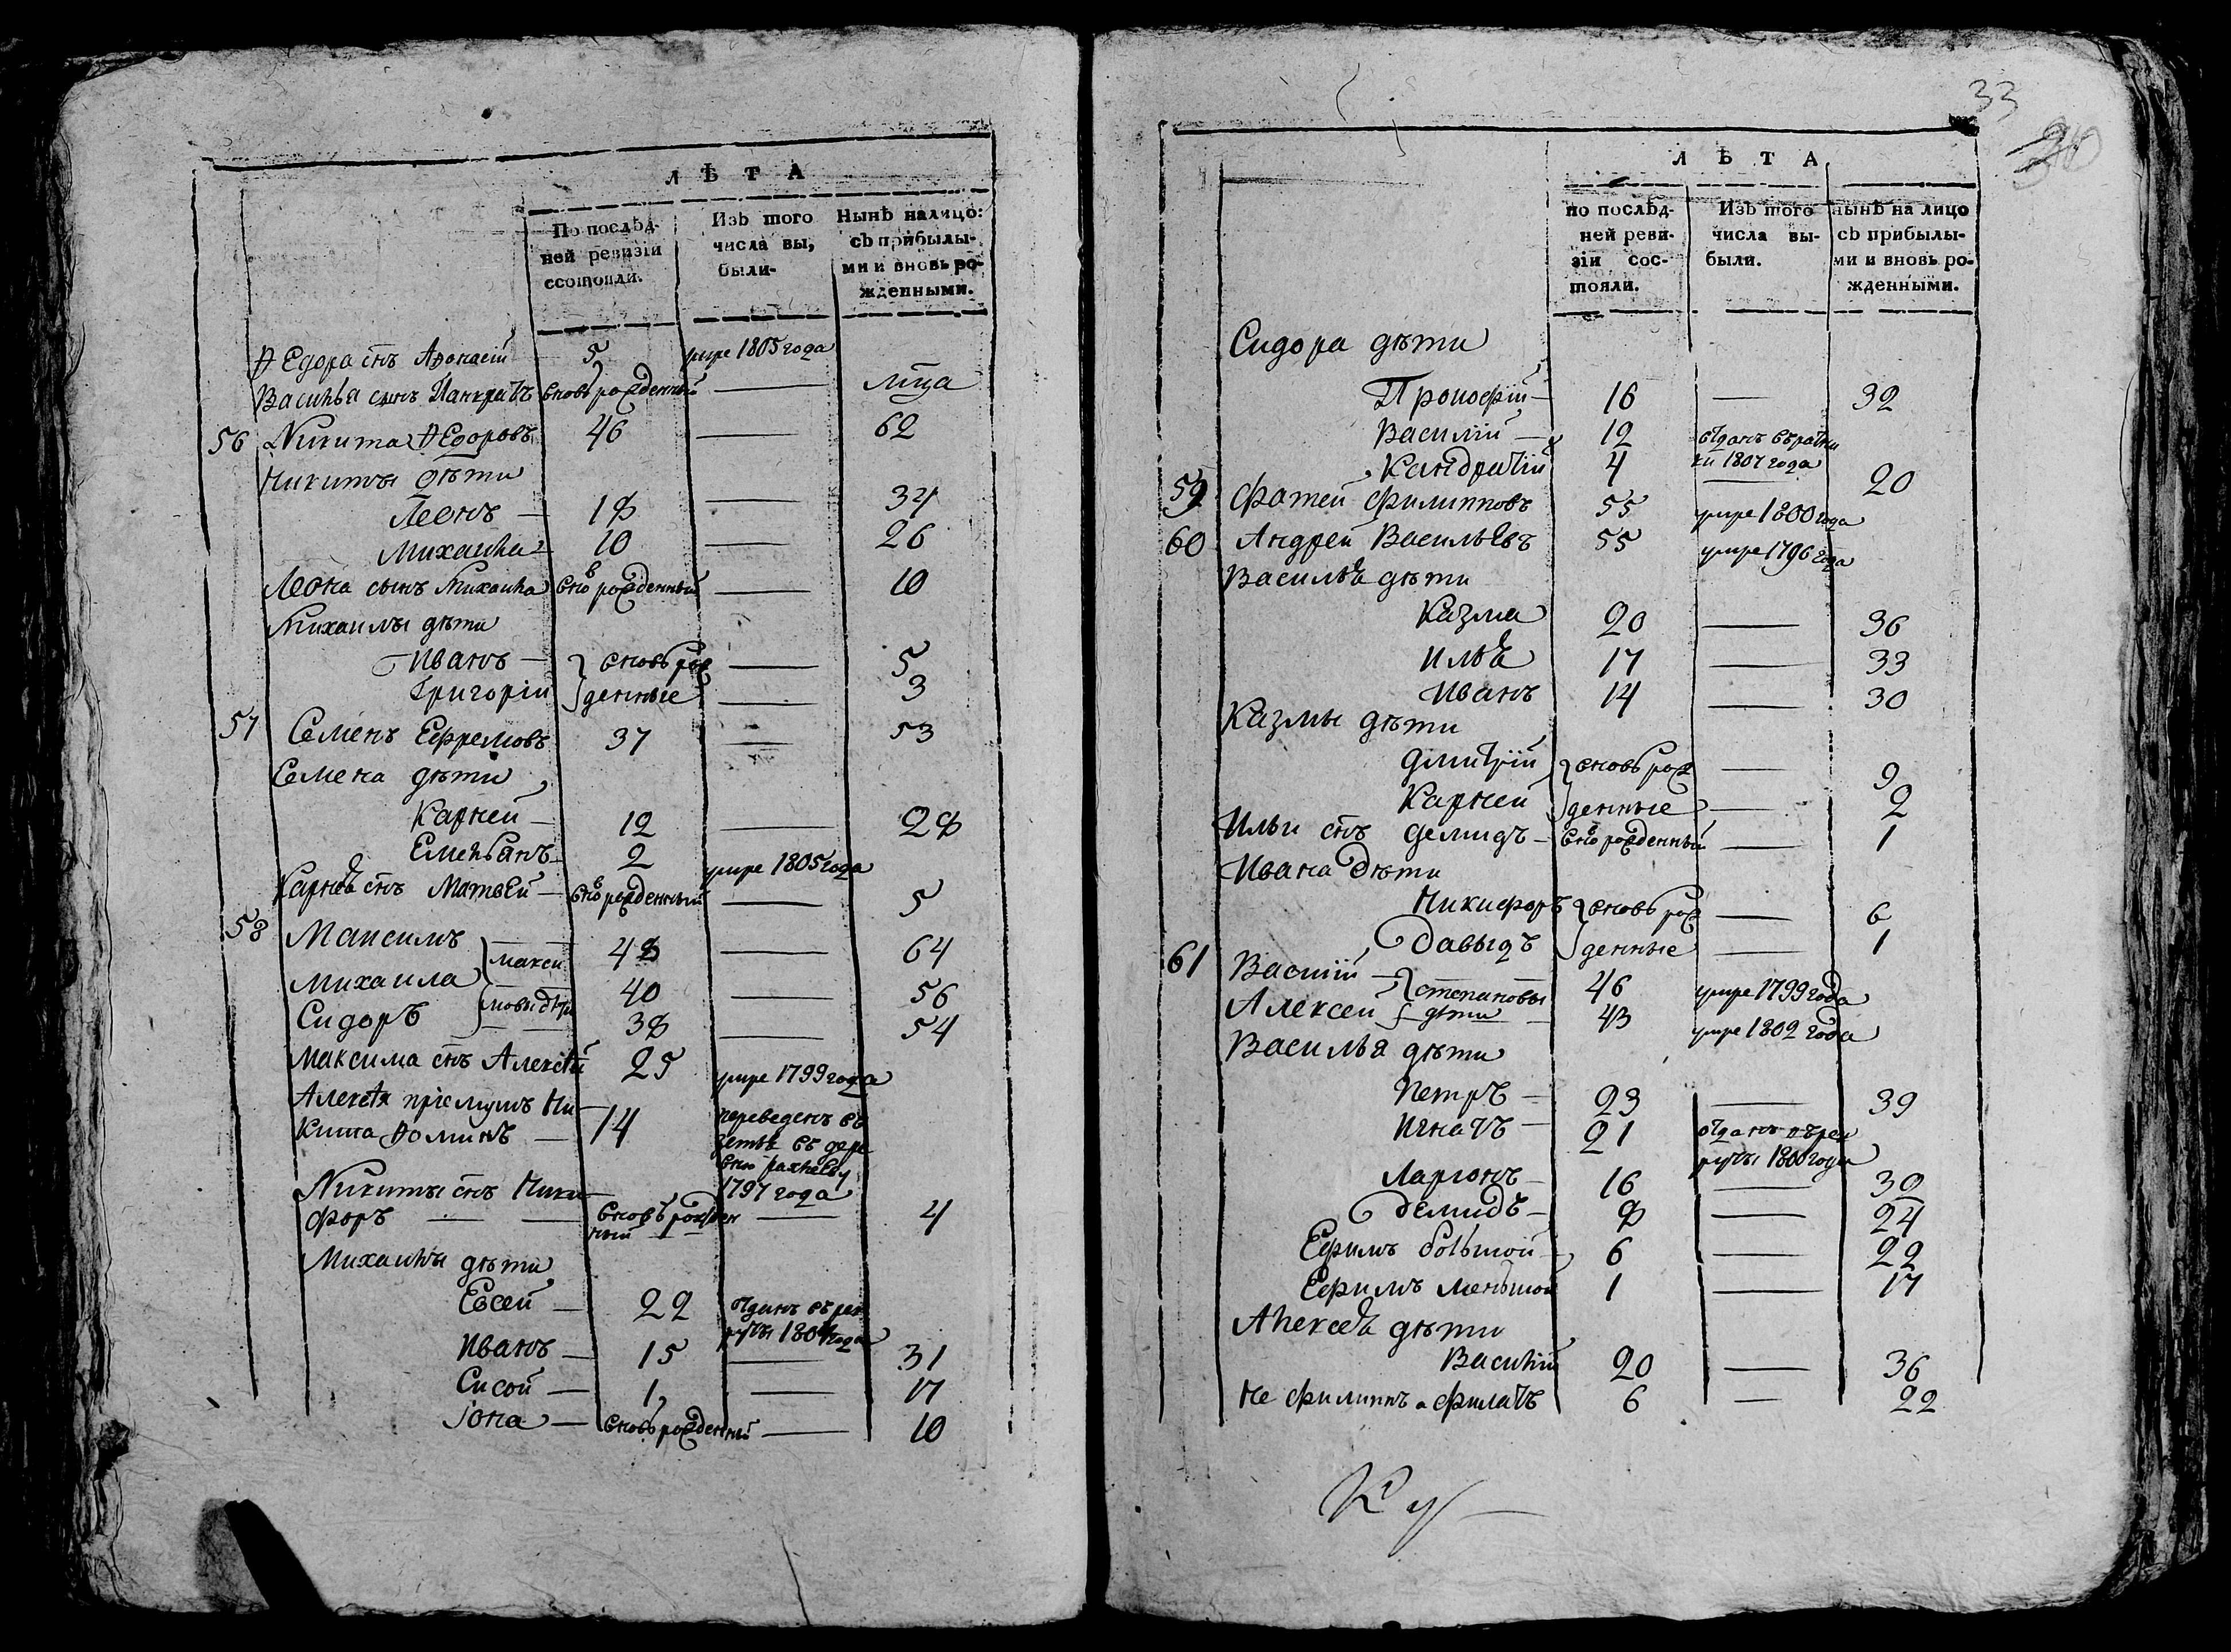 Л Ѣ Т А
По послѣд-
ней ревизіи
состояли.
Изъ того
числа вы,
были-
Нынѣ налицо:
съ прибылы-
ми и вновь ро-
жденными.
Ѳедора снъ Афонасій 5 умре 1805 года
Василья сынъ Панкратъ вновь рожденный — лица
56 Никита Ѳедоровъ 46 — 62
Никиты дѣти
Леонъ — 18 — 34
Михаила — 10 — 26
Леона сынъ Михаила вновь рожденный — 10
Михаилы дѣти
Иванъ — вновь рож — 5
Григорій денные — 3
57 Семенъ Ефремовъ 37 — 53
Семена дѣти
Карней — 12 — 28
Емельянъ — 2 умре 1805 года
Карнѣя снъ Матвей — вновь рожденный — 5
58 Максимъ 48 — 64
макси
Михаила 40 — 56
мовы дѣти
Сидоръ 38 — 54
Максима снъ Алексѣй 25 умре 1799 года
Алексѣя пріемышъ Ни-
кита Ѳоминъ — 14 переведенъ въ
въ дере
вню
1797 года
Никиты снъ Ники-
форъ — — вновь рожден
ный — 4
Михаилы дѣти
Евсей — 22 отданъ въ рек
руты 1804 года
Иванъ — 15 — 31
Сисой — 1 — 17
Іона — вновь рожденный — 10
33
30
Л Ѣ Т А
по послѣд-
ней реви-
зіи сос-
тояли.
Изъ того
числа вы-
были.
нынѣ на лицо
съ прибылы-
ми и вновь ро-
жденными.
Сидора дѣти
Прокофій — 16 — 32
Василій — 12 отданъ въ ратни
ки 1807 года
Кандратій 4 — 20
59 Фатей Филипповъ 55 умре 1800 года
60 Андрей Васильевъ 55 умре 1796 года
Василья дѣти
Казма 20 — 36
Илья 17 — 33
Иванъ 14 — 30
Казмы дѣти
Дмитрій вновь рож — 9
Карней денные — 2
Ильи снъ Демидъ — вновь рожденный — 1
Ивана дѣти
Никифоръ вновь рож — 6
Давыдъ денные — 1
61 Василій — степановы 46 умре 1799 года
Алексей дѣти 43 умре 1802 года
Василья дѣти
Петръ — 23 — 39
Игнатъ — 21 отданъ в рек
руты 1800 года
Ларионъ — 16 — 32
Демидъ — 8 — 24
Ефимъ большой — 6 — 22
Ефимъ меньшой 1 — 17
Алексея дѣти
Василій 20 — 36
Не Филиппъ а Филатъ 6 — 22